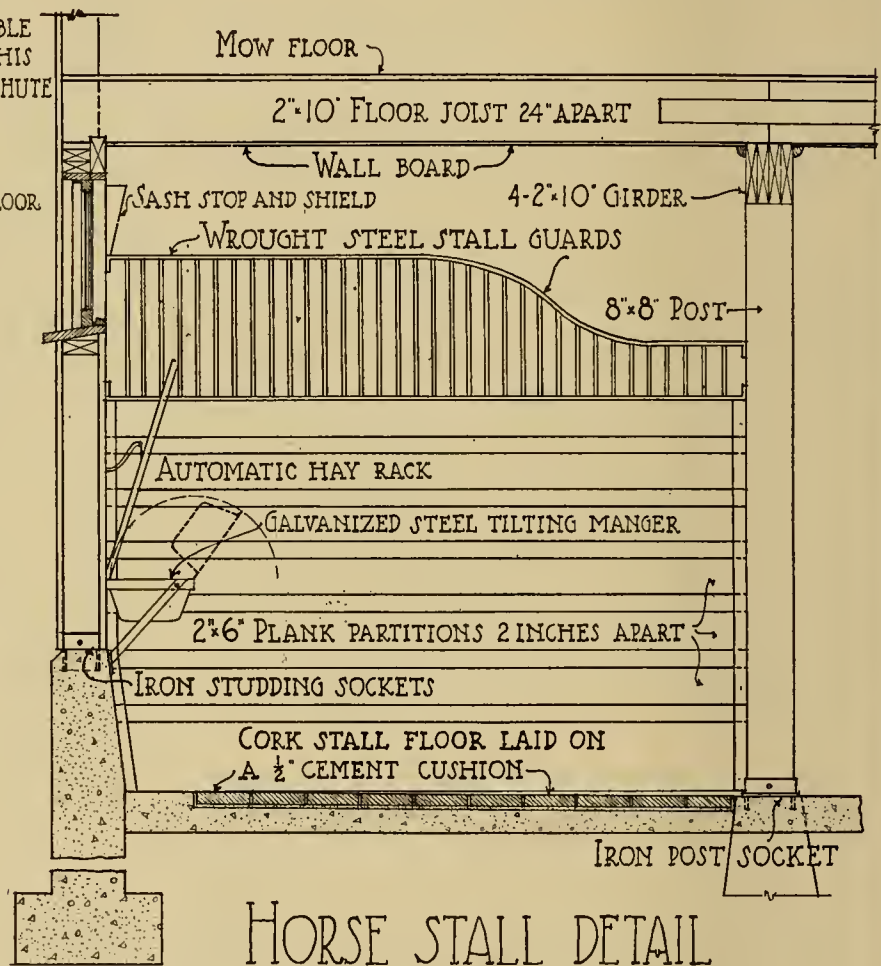 BLE
HIS
HUTE
MOW FLOOR
2"×10" FLOOR JOIST 24" APART
WALL BOARD
OOR
SASH STOP AND SHIELD
4-2"×10" GIRDER
WROUGHT STEEL STALL GUARDS
8"×8" POST
AUTOMATIC HAY RACK
GALVANIZED STEEL TILTING MANGER
2"×6" PLANK PARTITIONS 2 INCHES APART
IRON STUDDING SOCKETS
CORK STALL FLOOR LAID ON
A ½" CEMENT CUSHION
IRON POST SOCKET
HORSE STALL DETAIL